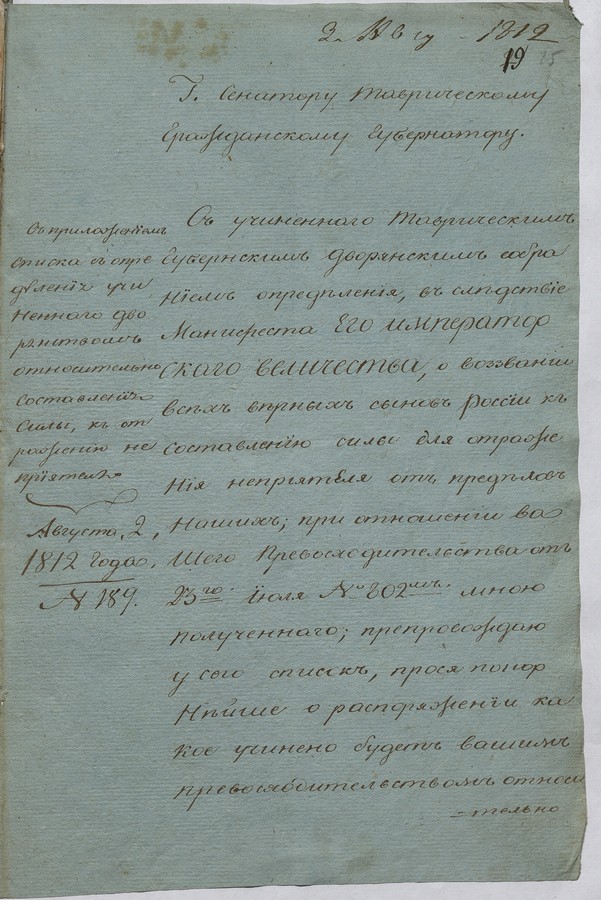 2. Авгу – 1812
19
15
Г. Сенатору Таврическому
Гражданскому Губернатору.
Съ приложеніемъ
списка съ опре
дѣленія учи
неннаго дво
рянствомъ
относительно
составленія
силы, къ от
раженію не
пріятеля
Августа, 2,
1812 года.
№ 189.
Съ учиненнаго Таврическимъ
Губернскимъ дворянскимъ собра
ніемъ опредѣленія, въ слѣдствіе
Манифеста Его император
скаго величества, о воззваніи
всѣхъ вѣрныхъ сыновъ Россіи къ
составленію силы для отраже
нія непріятеля отъ предѣловъ
Нашихъ; при отношеніи ва
шего Превосходительства отъ
23го. Іюля № 802мъ. мною
полученнаго; препровождаю
у сего списокъ, прося покор
нѣйше о распоряженіи ка
кое учинено будетъ вашимъ
превосходительствомъ относи
=тельно